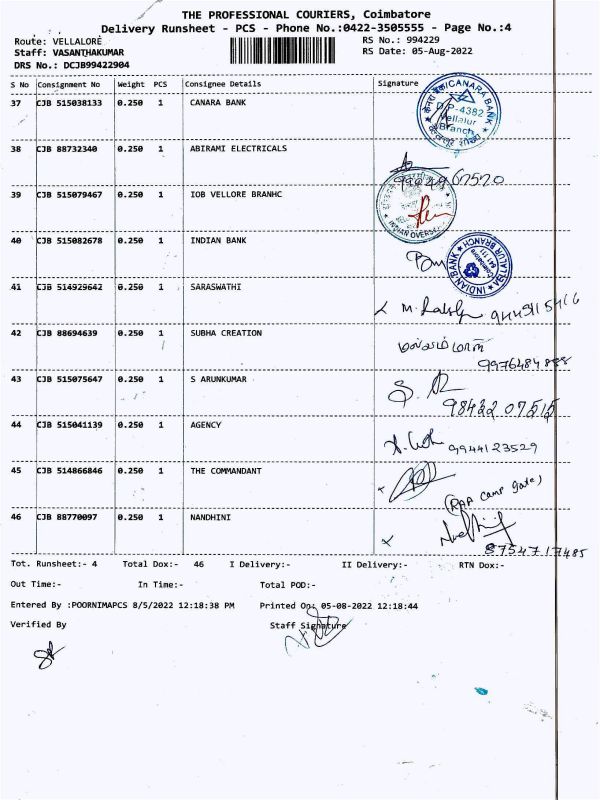 THE PROFESSIONAL COURIERS, Coimbatore
Delivery Runsheet - PCS - Phone No.:0422-3505555 - Page No.:4
Route: VELLALORE
RS No.: 994229
Staff: VASANTHAKUMAR
RS Date: 05-Aug-2022
DRS No.: DCJB99422904
S No Consignment No Weight PCS Consignee Details Signature
37 CJB 515038133 0.250 1 CANARA BANK
CANARA BANK
DP-4382
Vellalur
Branch
38 CJB 88732340 0.250 1 ABIRAMI ELECTRICALS
39 CJB 515079467 0.250 1 IOB VELLORE BRANHC
40 CJB 515082678 0.250 1 INDIAN BANK
INDIAN BANK
VELLALUR BRANCH
Coimbatore
41 CJB 514929642 0.250 1 SARASWATHI
42 CJB 88694639 0.250 1 SUBHA CREATION
43 CJB 515075647 0.250 1 S ARUNKUMAR
98422 07515
44 CJB 515041139 0.250 1 AGENCY
9944123529
45 CJB 514866846 0.250 1 THE COMMANDANT
camp gate)
46 CJB 88770097 0.250 1 NANDHINI
8754717485
Tot. Runsheet:- 4 Total Dox:- 46 I Delivery:- II Delivery:- RTN Dox:-
Out Time:- In Time:- Total POD:-
Entered By :POORNIMAPCS 8/5/2022 12:18:38 PM Printed On: 05-08-2022 12:18:44
Verified By Staff Signature